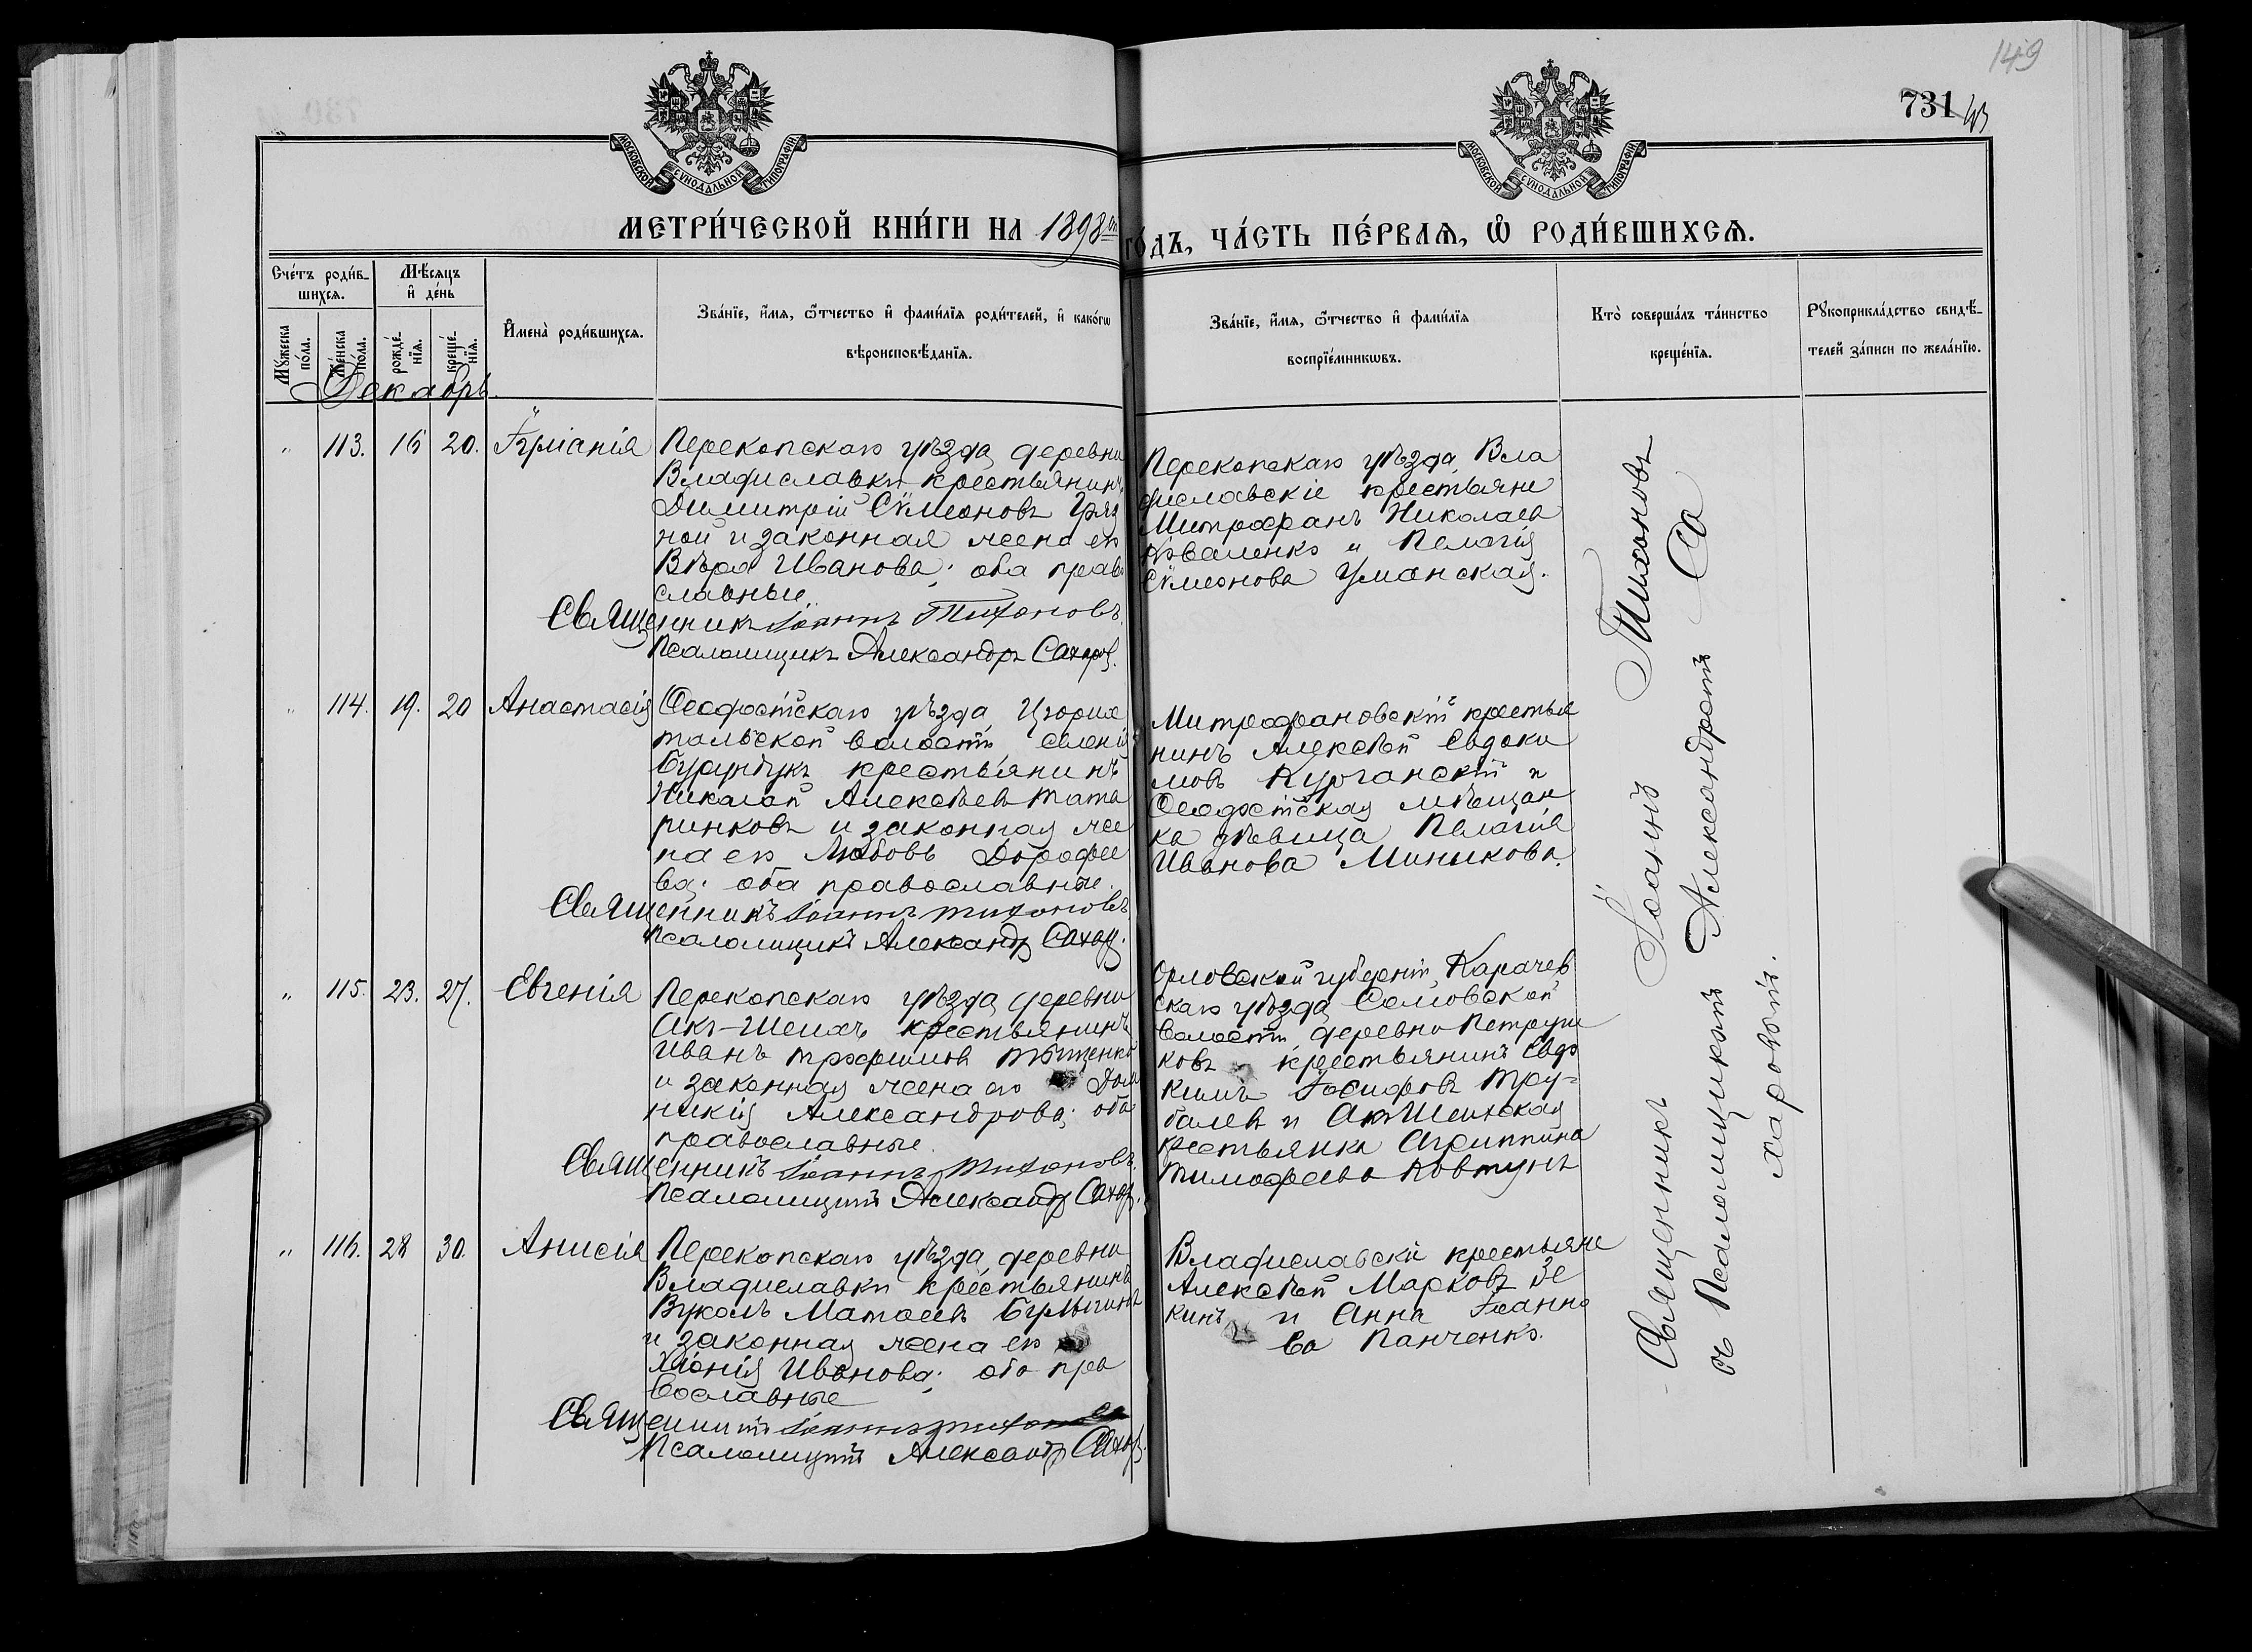 149
731
МОСКОВСКОЙ СѴНОДАЛЬНОЙ ТИПОГРАФІИ
МОСКОВСКОЙ СѴНОДАЛЬНОЙ ТИПОГРАФІИ
МЕТРИ́ЧЕСКОЙ КНИ́ГИ НА 1898 го́дъ, ЧА́СТЬ ПЕ́РВАѦ, Ѡ҆ РОДИ́ВШИХСѦ.
Сче́тъ роди́в-
шихсѧ.
Мꙋ́жеска по́ла.
Же́нска по́ла.
Мѣ́сѧцъ
и҆ де́нь
рожде́-
нїѧ.
креще́-
нїѧ.
И҆мена̀ роди́вшихсѧ.
Зва́нїе, и҆́мѧ, ѻ҆́тчество и҆ фами́лїѧ роди́телей, и҆ како́гѡ
вѣроисповѣ́данїѧ.
Зва́нїе, и҆́мѧ, ѻ҆́тчество и҆ фами́лїѧ
воспрїе́мникѡвъ.
Кто̀ соверша́лъ та́инство
креще́нїѧ.
Рꙋкоприкла́дство свидѣ́-
телей за́писи по жела́нїю.
Декабрь.
" 113. 16 20.
Перекопскаго уѣзда, деревни
Владиславки крестьянинъ
Димитрій Сѵмеоновъ Гряз
ной и законная жена его
Вѣра Иванова; оба право
славные.
Священникъ Іоаннъ Тихоновъ.
Псаломщикъ Александръ Сахаров.
Перекопскаго уѣзда, Вла
диславскіе крестьяне
Митрофанъ Николаев
Коваленко и Пелагія
Сѵмеонова Уманская.
" 114. 19. 20 Анастасія
Ѳеодосійскаго уѣзда, Цюрих
тальской волости, селенія
Бурундукъ крестьянинъ
Николай Алексѣевъ Тата
ринковъ и законная же
на его Любовь Дорофее
ва; оба православные.
Священникъ Іоаннъ Тихоновъ
Псаломщикъ Александр Сахар.
Митрофановскій крестья
нинъ Алексѣй Евдоки
мовъ Курганскій и
Ѳеодосійская мѣщан
ка дѣвица Пелагія
Иванова Миникова.
" 115. 23. 27. Евгенія
Перекопскаго уѣзда, деревни
Акъ-Шеихъ крестьянинъ
Иванъ Трофимов
и законная жена его Дом
никія Александрова; оба
православные.
Священникъ Іоаннъ Тихоновъ.
Псаломщикъ Александр Сахар.
Орловской губерніи, Карачев
скаго уѣзда, Сомовской
волости деревни Петруш
ковъ крестьянинъ Евдо
кимъ Іосифовъ Тру-
балев и Акъ-Шеихская
крестьянка Агриппина
Тимофеева Ковтунъ
" 116. 28 30. Анисія
Перекопскаго уѣзда, деревни
Владиславки крестьянинъ
Вуколъ Матѳеевъ Булыгинъ
и законная жена его
Хіонія Иванова; оба пра
вославные
Священникъ Іоаннъ Тихоновъ
Псаломщикъ Александр Сахар.
Владиславскіе крестьяне
Алексѣй Марковъ Зе
кинъ и Анна Іоанно
ва Панченко.
Священникъ Іоаннъ Тихоновъ
съ Псаломщикомъ Александромъ Са
харовымъ.